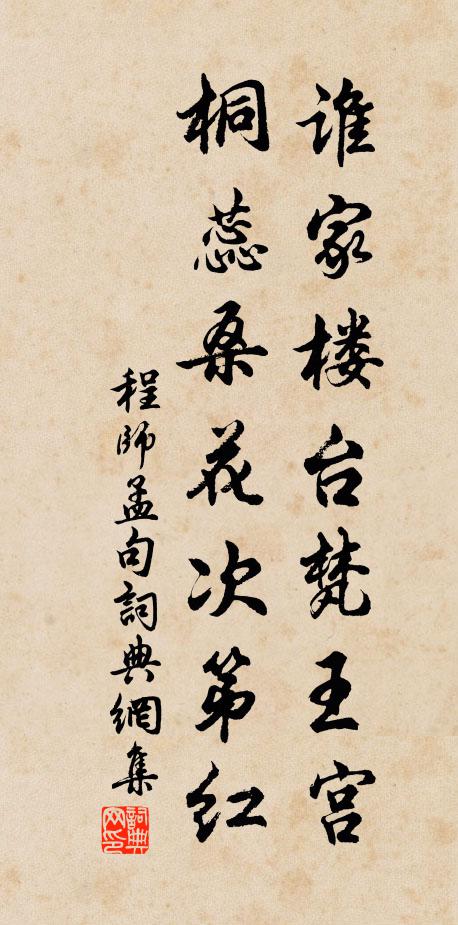 谁家楼台梵王宫
桐蕊桑花次第红
程師孟句詞典網集
詞典网印